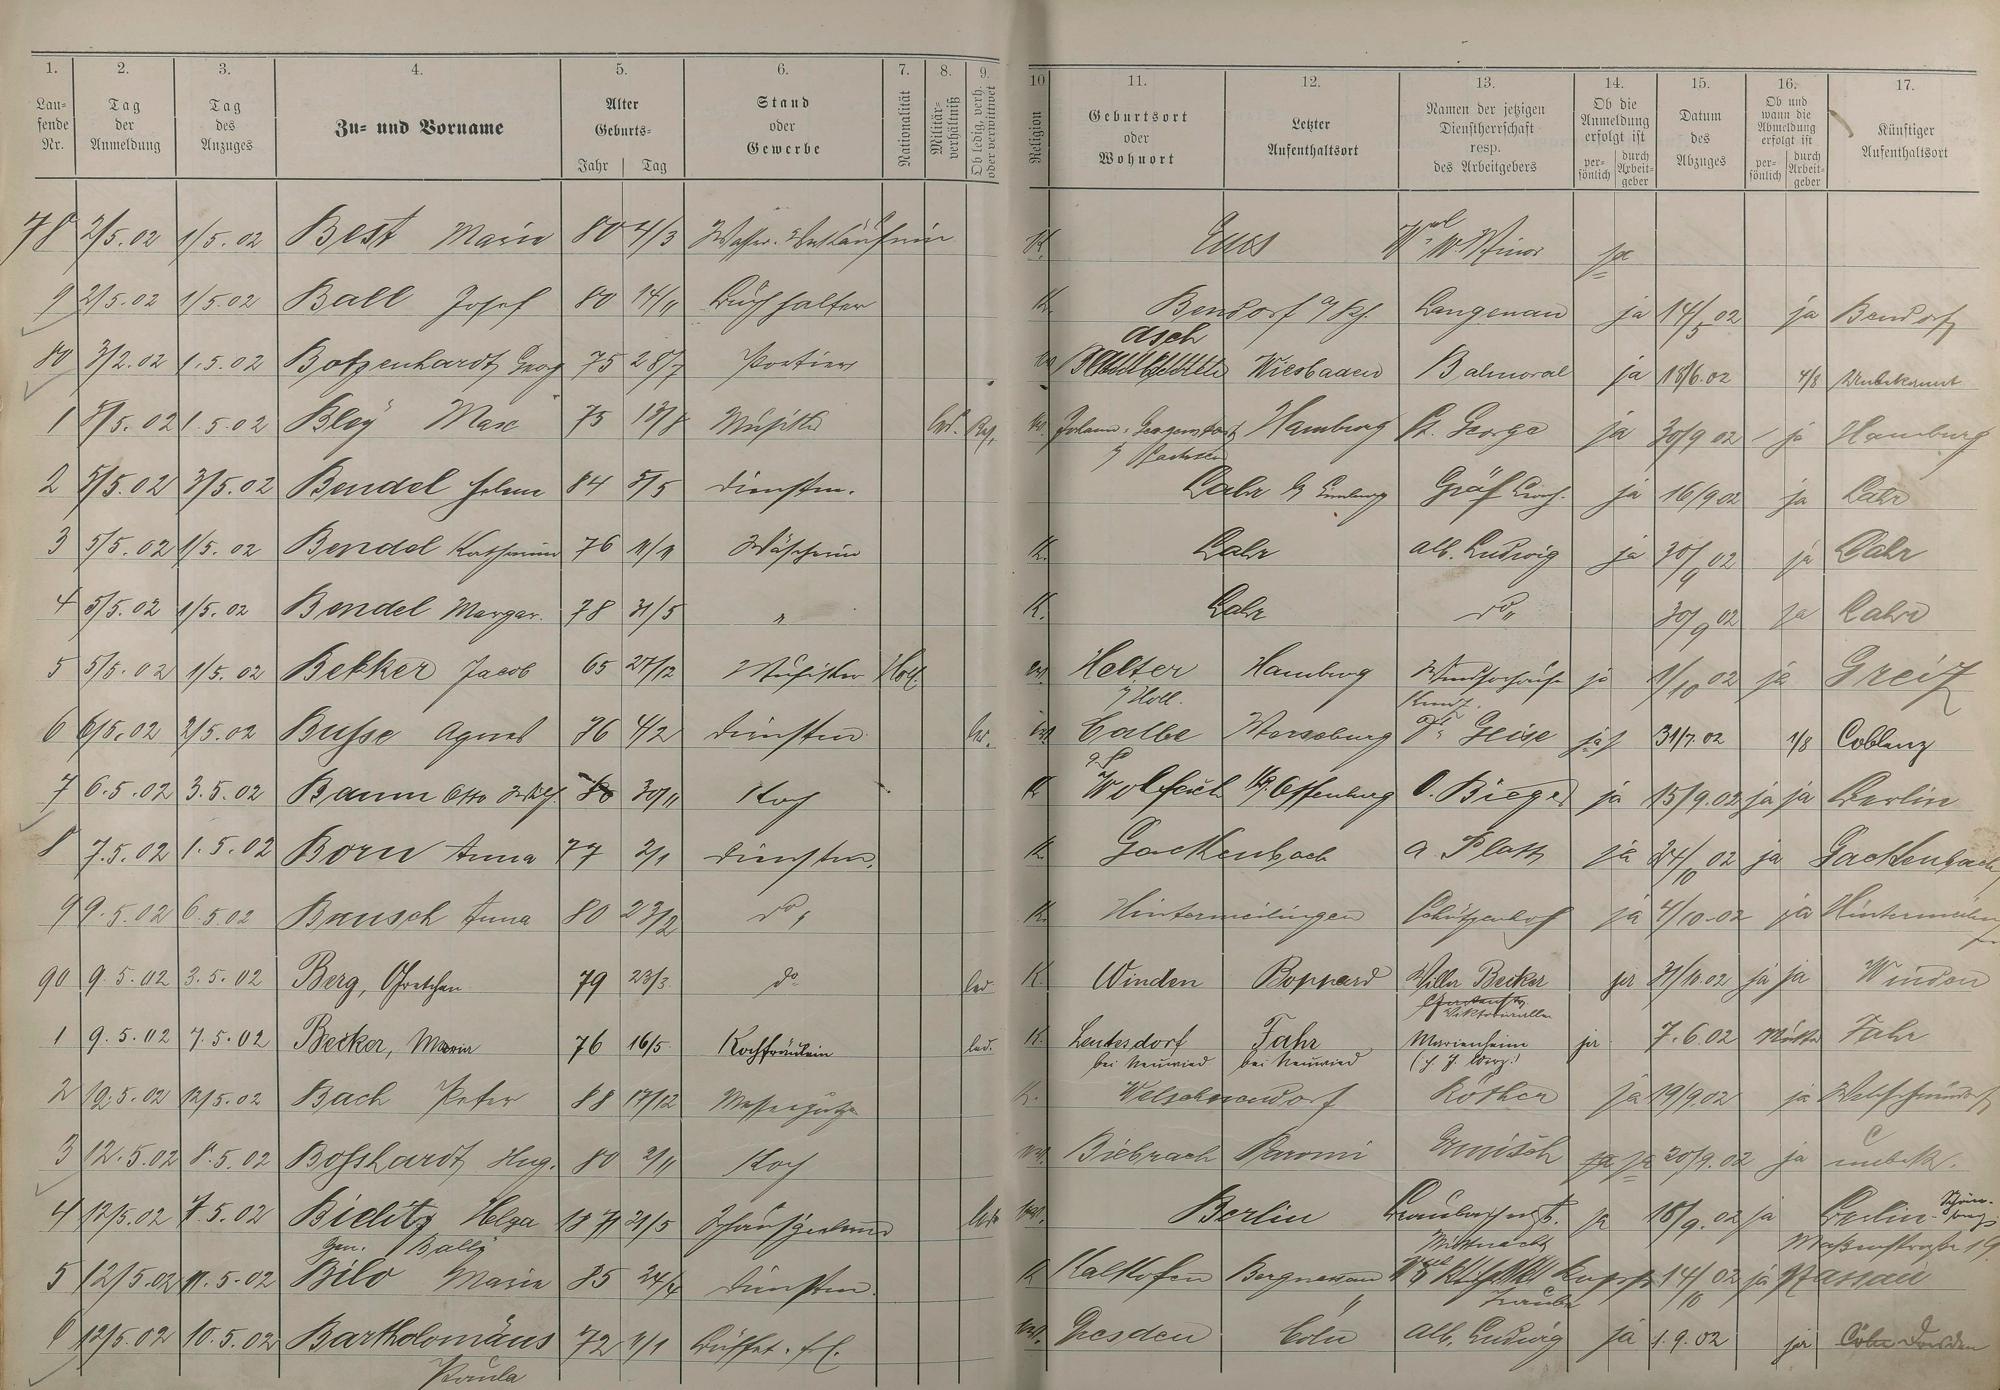 1. 2. 3. 4. 5. 6. 7. 8. 9. 10 11. 12. 13. 14. 15. 16. 17.
Lau-
fende
Nr.
Tag
der
Anmeldung
Tag
des
Anzuges
Zu- und Vorname
Alter
Geburts-
Jahr Tag
Stand
oder
Gewerbe
Nationalität
Militär-
verhältniß
Ob ledig, verh.
oder verwittwet
Religion
Geburtsort
oder
Wohnort
Letzter
Aufenthaltsort
Namen der jetzigen
Dienstherrschaft
resp.
des Arbeitgebers
Ob die
Anmeldung
erfolgt ist
per-
sönlich
durch
Arbeit-
geber
Datum
des
Abzuges
Ob und
wann die
Abmeldung
erfolgt ist
per-
sönlich
durch
Arbeit-
geber
Künftiger
Aufenthaltsort
78 2/5.02 1/5.02 Best Marie 80 4/3 Wasser-Verkäuferin K. Ems ja
9 2/5.02 1/5.02 Ball Josef 80 14/11 Buchhalter K. Bendorf a/Rh. Langenau ja 14/5 02 ja Bendorf
asch
80 3/2.02 1.5.02 Botzenhardt Georg 75 28/7 Portier Wiesbaden Balmoral ja 18/6.02 4/8 Unbekannt
1 5/5.02 1.5.02 Bley Max 75 13/8 Musiker Johann-Georgenstadt Hamburg St. George ja 30/9 02 ja Hamburg
i/ Sachsen
2 5/5.02 3/5.02 Bendel Helene 84 5/5 Dienstm. Lahr b/ Limburg Gräf ja 16/9 02 ja Lahr
3 5/5.02 1/5.02 Bendel Katharina 76 11/11 Wäscherin K. Lahr Alb. Ludwig ja 30/9 02 ja Lahr
4 5/5.02 1/5.02 Bendel Margar. 78 31/5 " K. Lahr do " 30/9 02 ja Lahr
5 5/5.02 1/5.02 Bekker Jacob 65 27/12 Musiker Holl. ev. Helter Hamburg ja 1/10 02 ja Greiz
i/ Holl.
6 6/5.02 2/5.02 Busse Agnes 76 4/2 Dienstm. led. ev. Calbe Merseburg Dr. Geise ja 31/7.02 1/8 Coblenz
a. S.
7 6.5.02 3.5.02 Baum Otto Wilh. 80 30/11 Koch K Wolfach Offenburg O. Bieger ja 15/9.02 ja ja Berlin
8 7.5.02 1.5.02 Born Anna 77 2/1 Dienstm. K. Gackenbach A Platt ja 24/10 02 ja Gackenbach
9 9.5.02 6.5.02 Bausch Anna 80 23/2 do " K. Hintermeilingen Schützenhof ja 4/10.02 ja
90 9.5.02 3.5.02 Berg, Gretchen 79 23/3 do led K. Winden Boppard Villa Becker ja 31/10.02 ja ja Winden
Viktoriaallee
1 9.5.02 7.5.02 Becker, Maria 76 16/5 Kochfräulein led. K. Leutesdorf Fahr Marienheim ja 7.6.02 Fahr
bei Neuwied bei Neuwied
2 12.5.02 12/5.02 Bach Peter 88 17/12 K. Welschneudorf Röther ja 19/9.02 ja Welschneudorf
3 12.5.02 8.5.02 Boßhardt Hug. 80 2/11 Koch Biebrach ja 20/9.02 ja unbek.
4 12/5.02 7.5.02 Bielitz Helga 1871 21/5 led. Berlin ja 18/9.02 ja Berlin-Schöneberg
gen. Bally Maßenstraße 19
5 12/5.02 11.5.02 Bilo Marie 85 24/4 Dienstm. K Kalkofen Bergnassau 14/10 02 ja Nassau
6 12/5.02 10.5.02 Bartholomäus 72 1/1 Büffet-frl. ev. Dresden Cöln Alb. Ludwig ja 1.9.02 ja Cöln Dresden
Paula